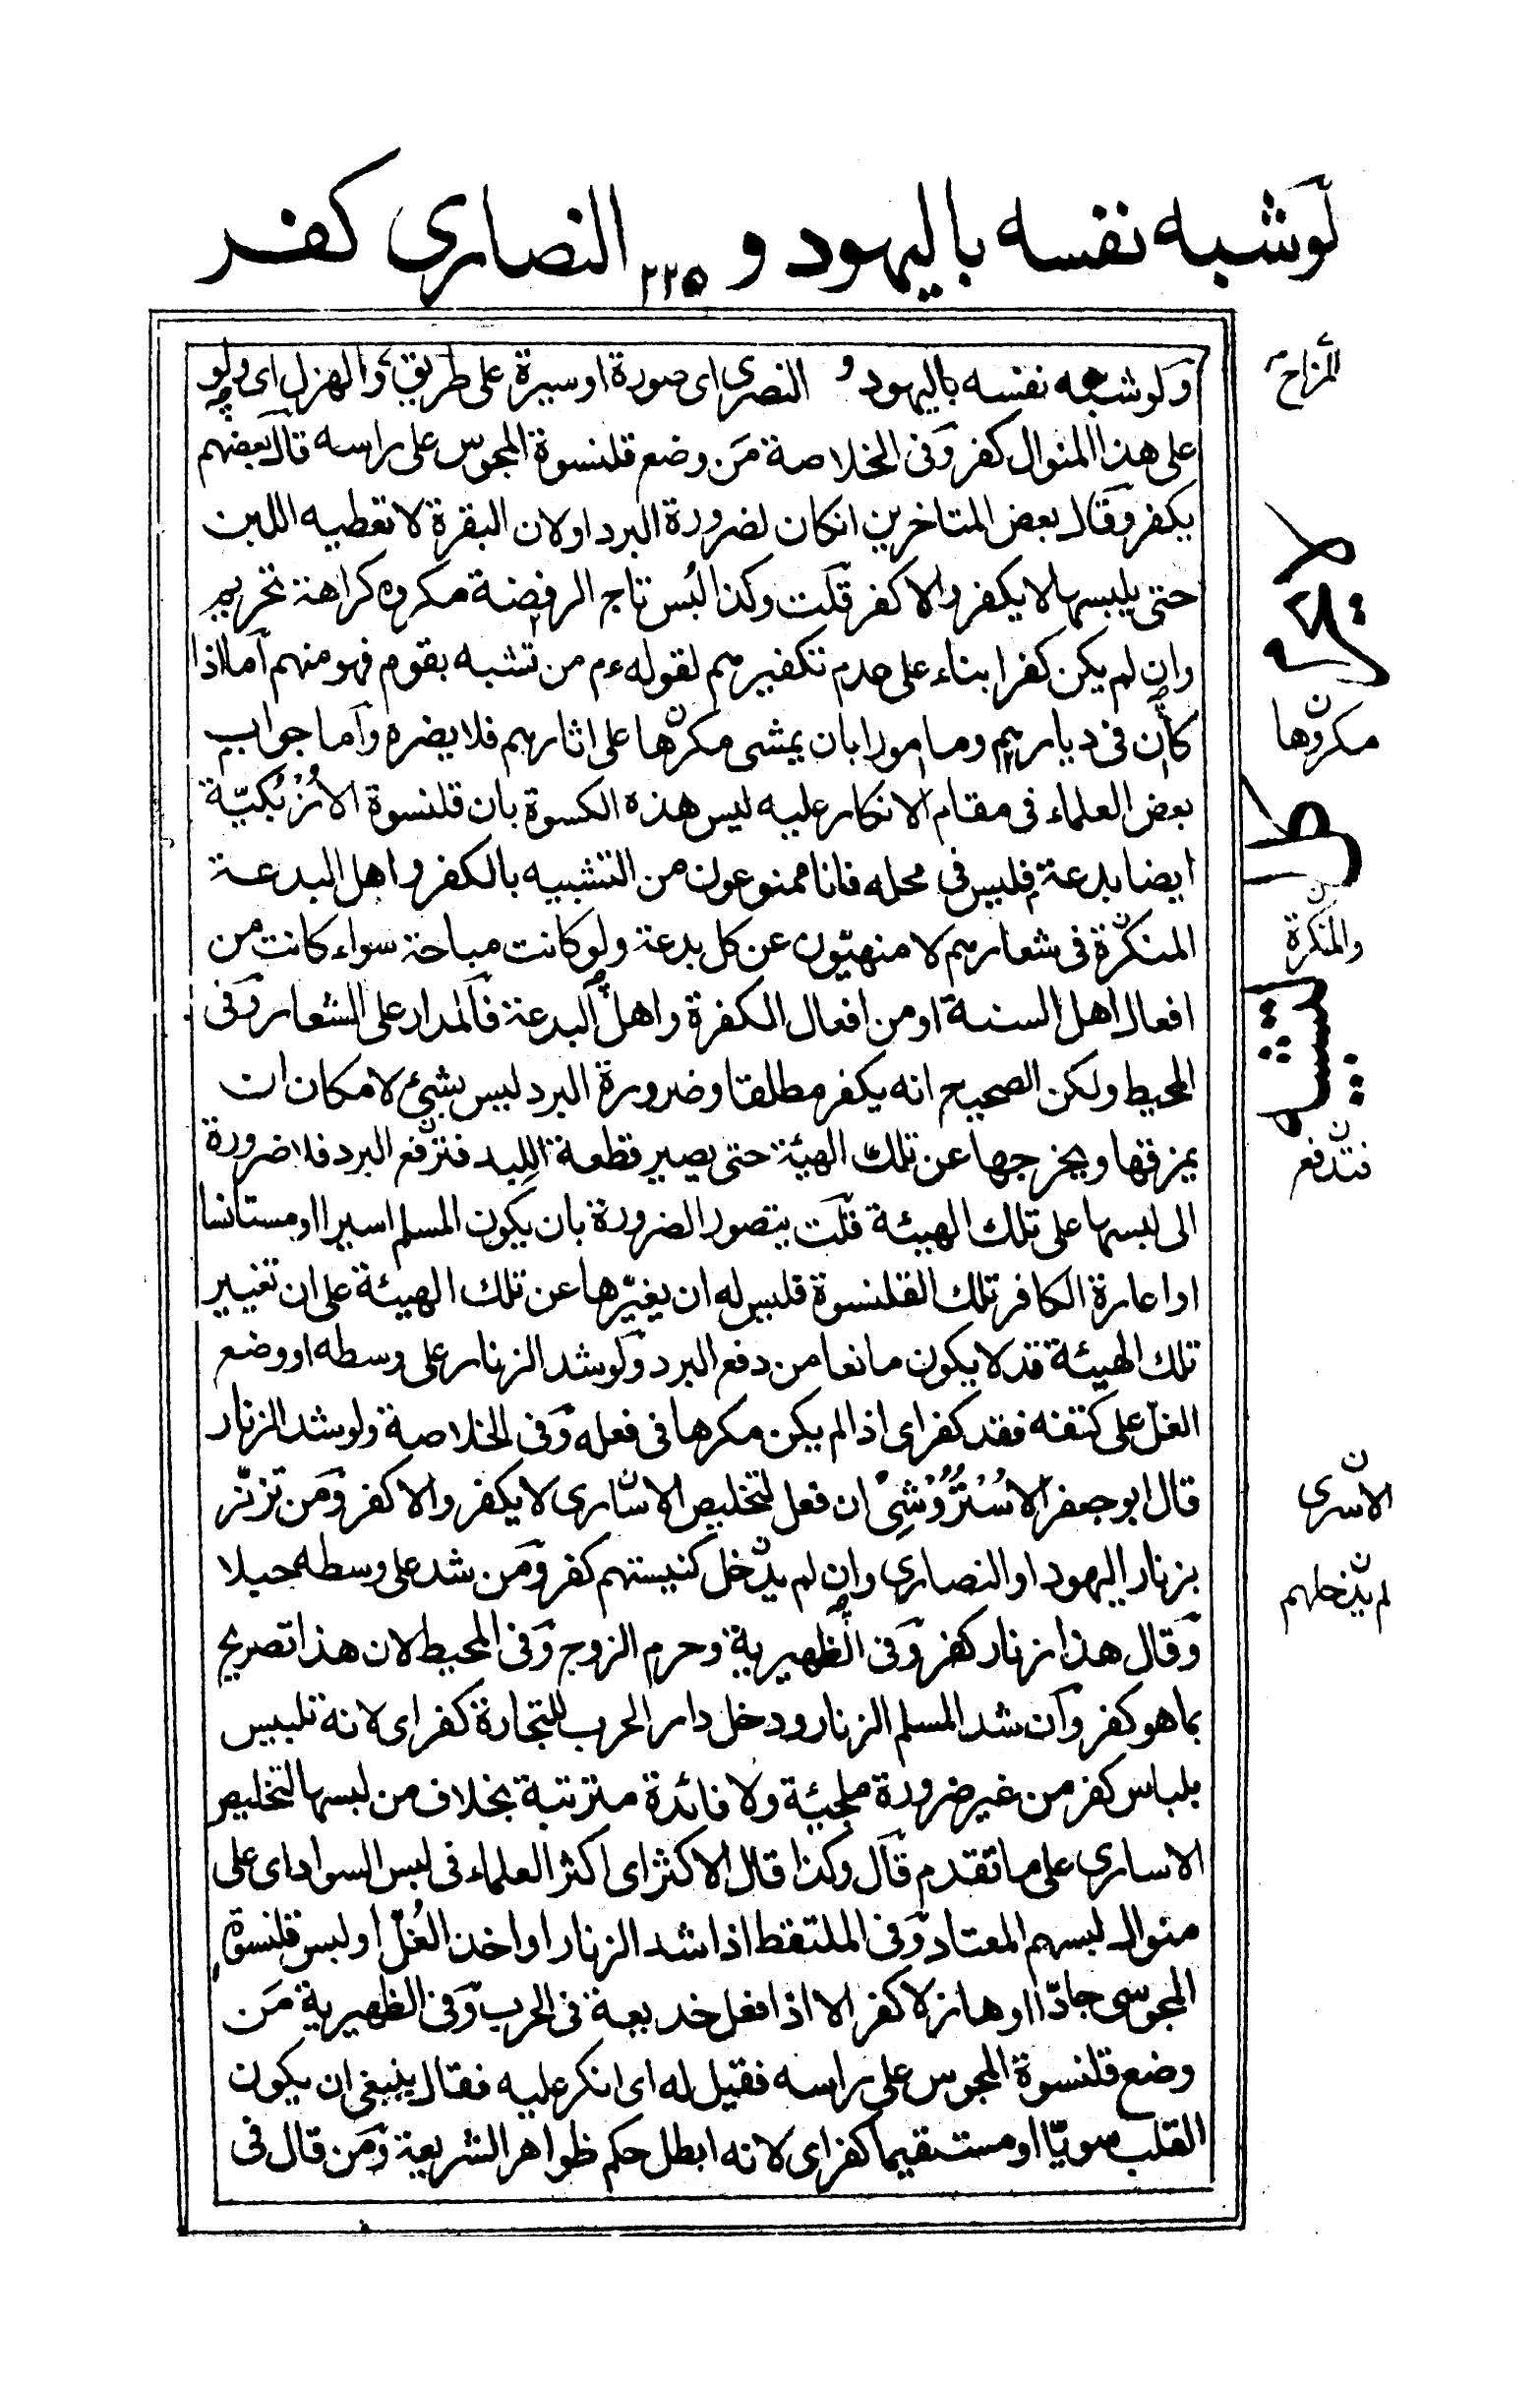 لوشبه نفسه باليهود و ٢٢٥ النصارى كفر
ولوشبه نفسه باليهود و النصرى اى صورة او سيرة على طريق والهزل اى ولو
المزاح
على هذا المنوال كفر وفى الخلاصة من وضع قلنسوة المجوس على راسه قال بعضهم
يكفر وقال بعض المتاخرين انكان لضرورة البرد اولان البقرة لا تعطيه اللبن
حتى يلبسها لا يكفر والا كفر قلت وكذا لبس تاج الرفضة مكروه كراهة تحريم
وان لم يكن كفرا بناء على عدم تكفيرهم لقوله ءم من تشبه بقوم فهو منهم اما اذا
كان فى ديارهم ومامورا بان يمشى مكرها على اثارهم فلا يضره واما جواب
مكروها
بعض العلماء فى مقام الانكار عليه ليس هذه الكسوة بان قلنسوة الأُزْبُكيّة
ايضا بدعة فليس فى محله فانا ممنوعون من التشبيه بالكفر واهل البدعة
المنكرة فى شعارهم لا منهيّون عن كل بدعة ولو كانت مباحة سواء كانت من
والمنكرة
افعال اهل السنة او من افعال الكفرة واهل البدعة فالمدار على الشعار وفى
المحيط ولكن الصحيح انه يكفر مطلقا وضرورة البرد ليس بشئ لامكان ان
يمزقها ويخرجها عن تلك الهيئة حتى يصير قطعة اللبد فتدفع البرد فلا ضرورة
فتدفع
الى لبسها على تلك الهيئة قلت يتصور الضرورة بان يكون المسلم اسيرا او مستانسا
او اعارة الكافر تلك القلنسوة فليس له ان يغيّرها عن تلك الهيئة على ان تغيير
تلك الهيئة قد لا يكون مانعا من دفع البرد ولو شد الزنار على وسطه او وضع
الغل على كتفه فقد كفر اى اذا لم يكن مكرها فى فعله وفى الخلاصة ولو شد الزنار
قال ابو جعفر الاُسْتُرُوْشِىْ ان فعل لتخليص الاسارى لا يكفر والا كفر ومن تزنّر
الاسرى
بزنار اليهود او النصارى وان لم يدخل كنيستهم كفر ومن شد على وسطه حبلا
لم يدخلهم
وقال هذا زنار كفر وفى الظهيرية وحرم الزوج وفى المحيط لان هذا تصريح
بما هو كفر وان شد المسلم الزنار ودخل دار الحرب للتجارة كفر اى لانه تلبيس
بلباس كفر من غير ضرورة ملجئة ولا فائدة مترتبة بخلاف من لبسها لتخليص
الاسارى على ما تقدم قال وكذا قال الاكثر اى اكثر العلماء فى لبس السواد اى على
منوال لبسهم المعتاد وفى الملتقط اذا شد الزنار او اخذ الغُلّ او لبس قلنسوة
المجوسى جادّا او هازلا كفر الا اذا فعل خديعة فى الحرب وفى الظهيرية من
وضع قلنسوة المجوس على راسه فقيل له اى انكر عليه فقال ينبغى ان يكون
القلب سويّا او مستقيما كفر اى لانه ابطل حكم ظواهر الشريعة ومن قال فى